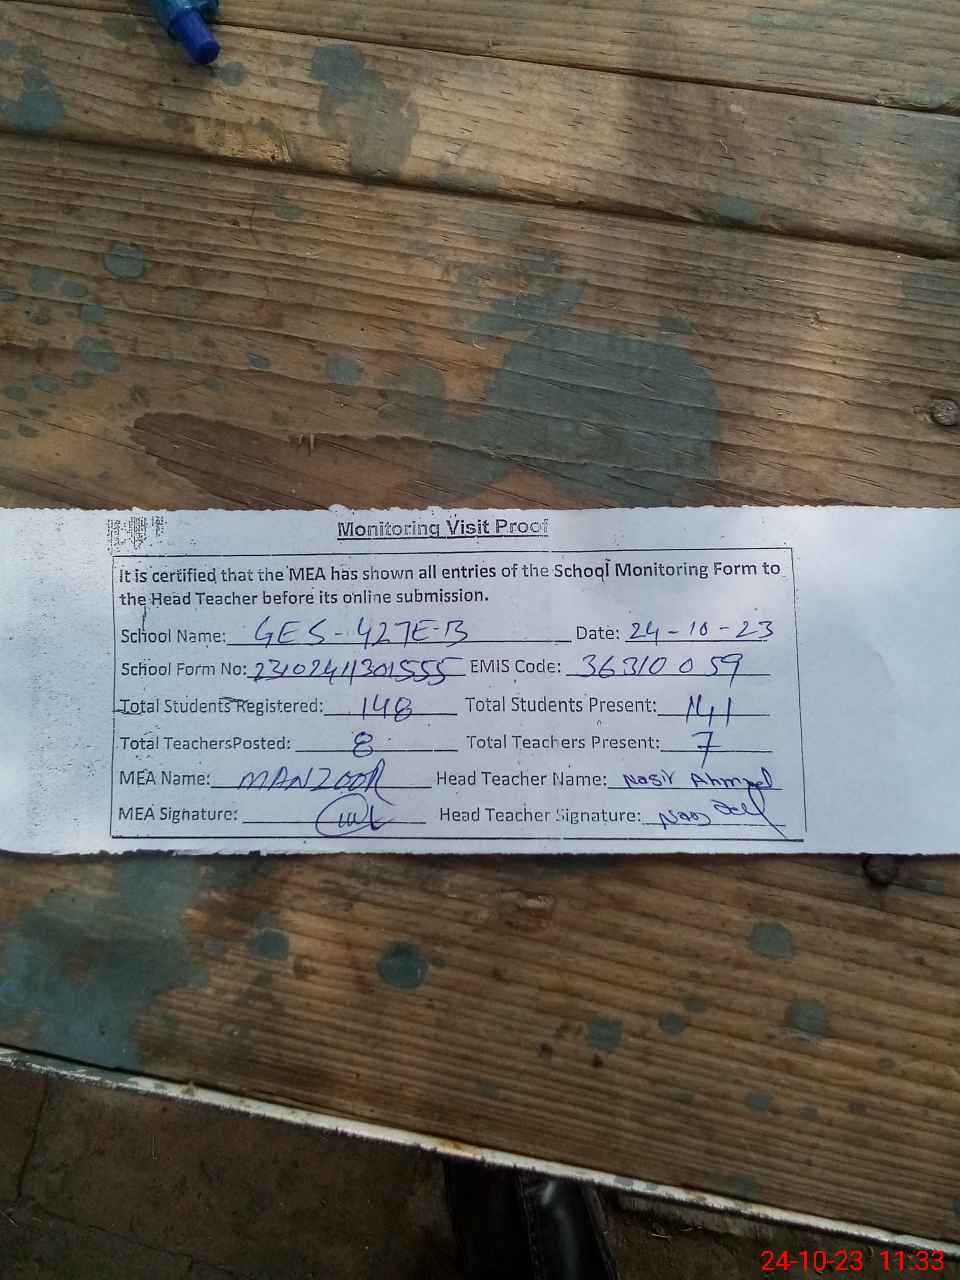 Monitoring Visit Proof
It is certified that the MEA has shown all entries of the School Monitoring Form to
the Head Teacher before its online submission.
School Name: GES-427E-B Date: 24-10-23
School Form No: 2310241301555 EMIS Code: 36310059
Total Students Registered: 148 Total Students Present: 141
Total TeachersPosted: 8 Total Teachers Present: 7
MEA Name: MANZOOR Head Teacher Name: Nasir Ahmad
MEA Signature: Head Teacher Signature:
24-10-23 11:33